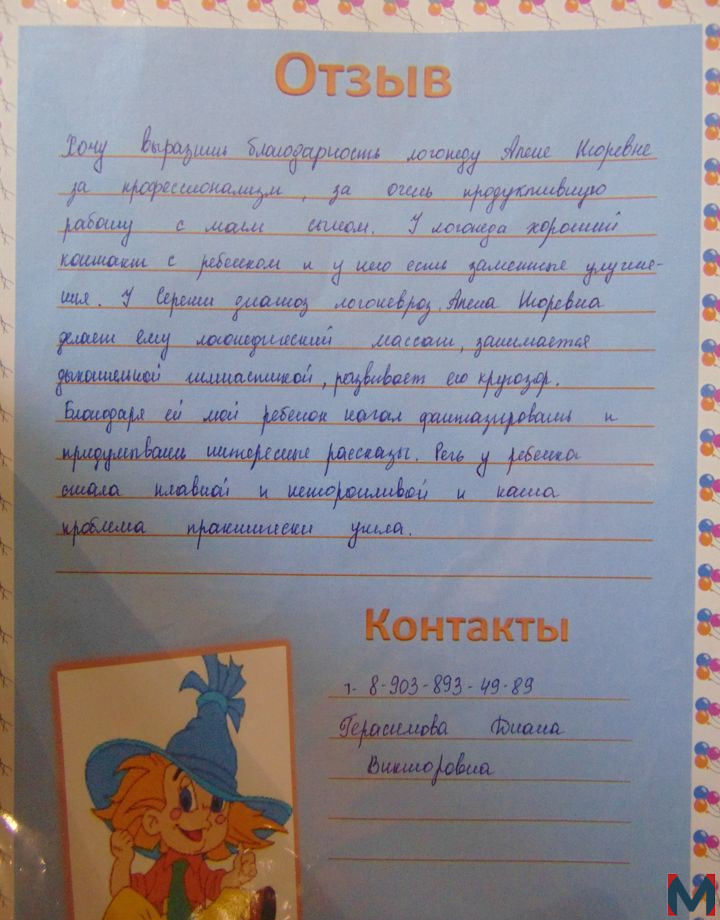 Отзыв
Хочу выразить благодарность логопеду Алене Игоревне
за профессионализм, за очень продуктивную
работу с моим сыном. У логопеда хороший
контакт с ребенком и у него есть заметные улучше-
ния. У Сережи диагноз логоневроз. Алена Игоревна
делает ему логопедический массаж, занимается
дыхательной гимнастикой, развивает его кругозор.
Благодаря ей мой ребенок начал фантазировать и
придумывать интересные рассказы. Речь у ребенка
стала плавной и неторопливой и наша
проблема практически ушла.
Контакты
т. 8-903-893-49-89
Герасимова Диана
Викторовна
М